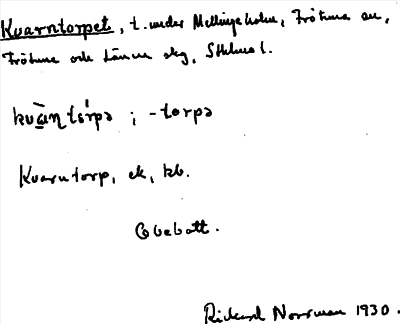 Kvarntorpet, t. under Mellingeholm, Frötuna sn,
Frötuna och Länna skg, Sthlms l.
kvàɳtórpə ; -torpə
Kvarntorp, ek, kb.
Obebott.
Rickard Norrman 1930.